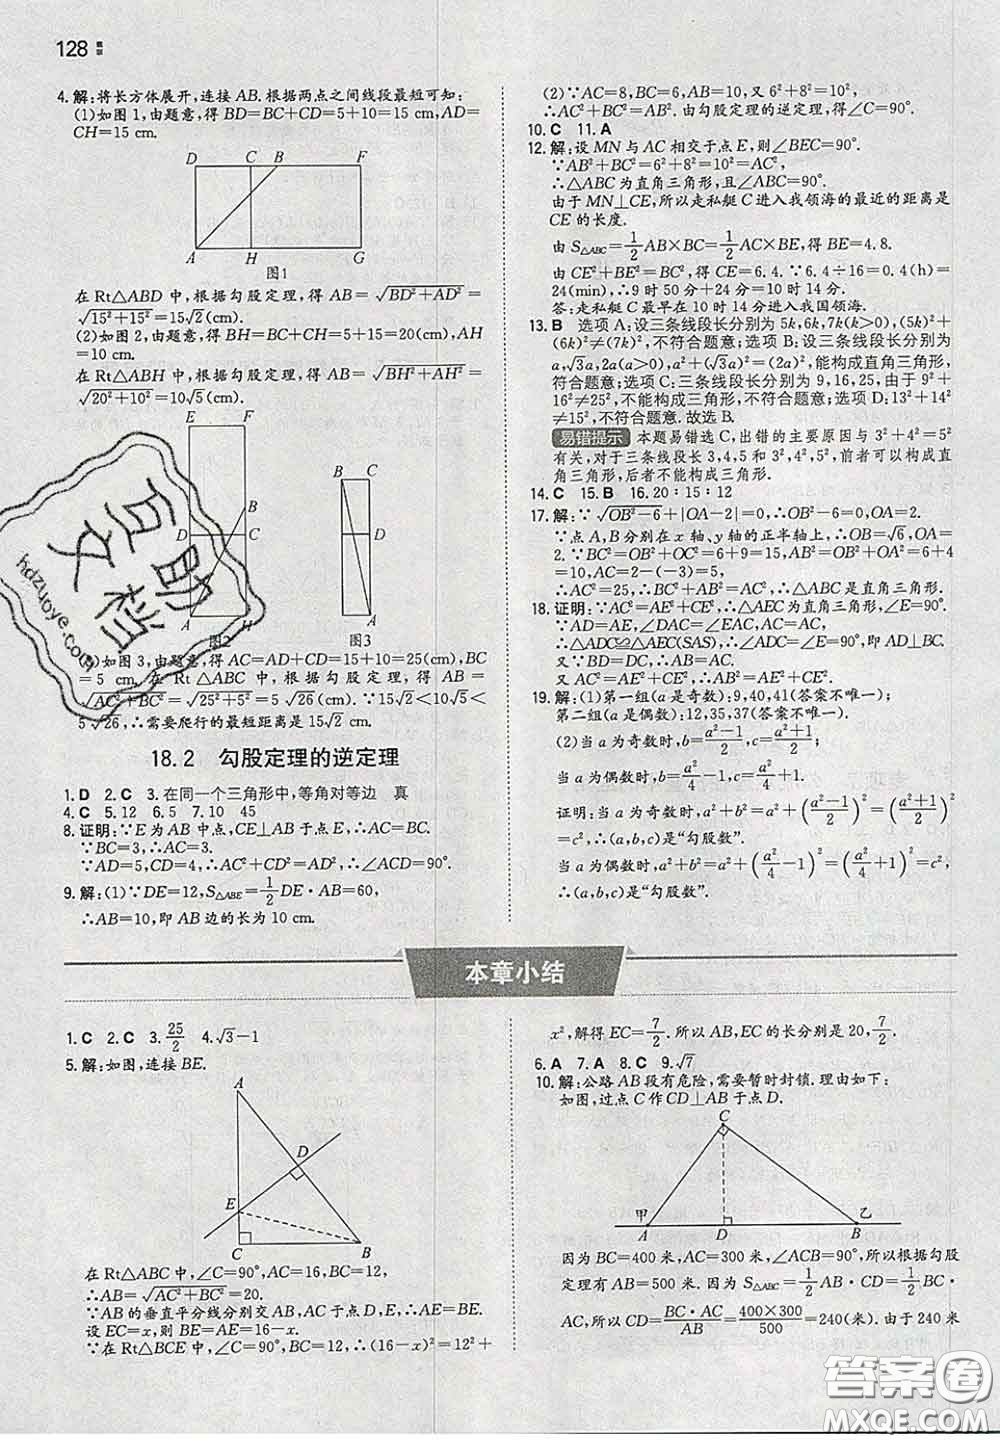 128
4.解:将长方体展开,连接 AB.根据两点之间线段最短可知:
(1)如图1,由题意,得 BD=BC+CD=5+10=15 cm,AD=
CH=15 cm.
D C B F
A H G
图1
在 Rt△ABD 中,根据勾股定理,得 AB=√(BD²+AD²)=
√(15²+15²)=15√2(cm).
(2)如图2,由题意,得 BH=BC+CH=5+15=20(cm),AH
=10 cm.
在 Rt△ABH 中,根据勾股定理,得 AB=√(BH²+AH²)=
√(20²+10²)=10√5(cm).
E F
B
D C
A H
图2
B C
D
A
图3
(3)如图3,由题意,得 AC=AD+CD=15+10=25(cm),BC
=5 cm.在 Rt△ABC 中,根据勾股定理,得 AB=
√(AC²+BC²)=√(25²+5²)=5√26(cm).∵15√2<10√5<
5√26,∴需要爬行的最短距离是15√2 cm.
18.2 勾股定理的逆定理
1.D 2.C 3.在同一个三角形中,等角对等边 真
4.C 5.12 6.5 7.10 45
8.证明:∵E为AB中点,CE⊥AB于点E,∴AC=BC.
∵BC=3,∴AC=3.
∵AD=5,CD=4,∴AC²+CD²=AD²,∴∠ACD=90°.
9.解:(1)∵DE=12,S△ABE=1/2DE·AB=60,
∴AB=10,即 AB 边的长为 10 cm.
(2)∵AC=8,BC=6,AB=10,又 6²+8²=10²,
∴AC²+BC²=AB².由勾股定理的逆定理,得∠C=90°.
10.C 11.A
12.解:设 MN 与 AC 相交于点 E,则∠BEC=90°.
∵AB²+BC²=6²+8²=10²=AC²,
∴△ABC为直角三角形,且∠ABC=90°.
由于MN⊥CE,所以走私艇C进入我领海的最近的距离是
CE 的长度.
由 S△ABC=1/2AB×BC=1/2AC×BE,得 BE=4.8.
由 CE²+BE²=BC²,得 CE=6.4.∵6.4÷16=0.4(h)=
24(min),∴9时50分+24分=10时14分.
答:走私艇 C 最早在 10 时 14 分进入我国领海.
13.B 选项A:设三条线段长分别为 5k,6k,7k(k>0),(5k)²+
(6k)²≠(7k)²,不符合题意;选项B:设三条线段长分别为
a,√3a,2a(a>0),a²+(√3a)²=(2a)²,能构成直角三角形,
符合题意;选项C:三条线段长分别为 9,16,25,由于 9²+
16²≠25²,不能构成三角形,不符合题意;选项D:13²+14²
≠15²,不符合题意.故选B.
易错提示 本题易错选 C,出错的主要原因与 3²+4²=5²
有关,对于三条线段长 3,4,5 和 3²,4²,5²,前者可以构成直
角三角形,后者不能构成三角形.
14.C 15.B 16.20:15:12
17.解:∵√(OB²-6)+|OA-2|=0,∴OB²-6=0,OA=2.
∵点 A,B分别在 x 轴、y 轴的正半轴上,∴OB=√6,OA=
2.∵BC²=OB²+OC²=6+9=15,AB²=OB²+OA²=6+
4=10,AC=2-(-3)=5,
∴BC²+AB²=15+10=25=AC²,∴△ABC是直角三角形.
18.证明:∵AC²=AE²+CE²,∴△AEC为直角三角形,∠E=90°.
∵AD=AE,∠DAC=∠EAC,AC=AC,
∴△ADC≌△AEC(SAS),∴∠ADC=∠E=90°,即 AD⊥BC.
又∵BD=DC,∴AB=AC.
又∵AC²=AE²+CE²,∴AB²=AE²+CE².
19.解:(1)第一组(a是奇数):9,40,41(答案不唯一).
第二组(a是偶数):12,35,37(答案不唯一).
(2)当 a 为奇数时,b=(a²-1)/2,c=(a²+1)/2;
当 a 为偶数时,b=a²/4-1,c=a²/4+1.
证明:当 a 为奇数时,a²+b²=a²+((a²-1)/2)²=((a²+1)/2)²
=c²,∴(a,b,c)是“勾股数”.
当 a 为偶数时,a²+b²=a²+(a²/4-1)²=(a²/4+1)²=c²,
∴(a,b,c)是“勾股数”.
本章小结
1.C 2.C 3.25/2 4.√3-1
5.解:如图,连接 BE.
A
D
E
C B
在 Rt△ABC 中,∠C=90°,AC=16,BC=12,
∴AB=√(AC²+BC²)=20.
∵AB 的垂直平分线分别交 AB,AC 于点 D,E,∴BE=AE.
设 EC=x,则 BE=AE=16-x.
∵在 Rt△BCE 中,∠C=90°,BC=12,∴(16-x)²=12²+
x²,解得 EC=7/2.所以 AB,EC 的长分别是 20,7/2.
6.A 7.A 8.C 9.√7
10.解:公路 AB 段有危险,需要暂时封锁.理由如下:
如图,过点 C 作 CD⊥AB 于点 D.
C
甲 乙
A D B
因为 BC=400 米,AC=300 米,∠ACB=90°,所以根据勾股
定理有 AB=500 米.因为 S△ABC=1/2AB·CD=1/2BC·
AC,所以 CD=BC·AC/AB=400×300/500=240(米).由于 240 米
hdzuoye.com
答案圈
MXQE.COM